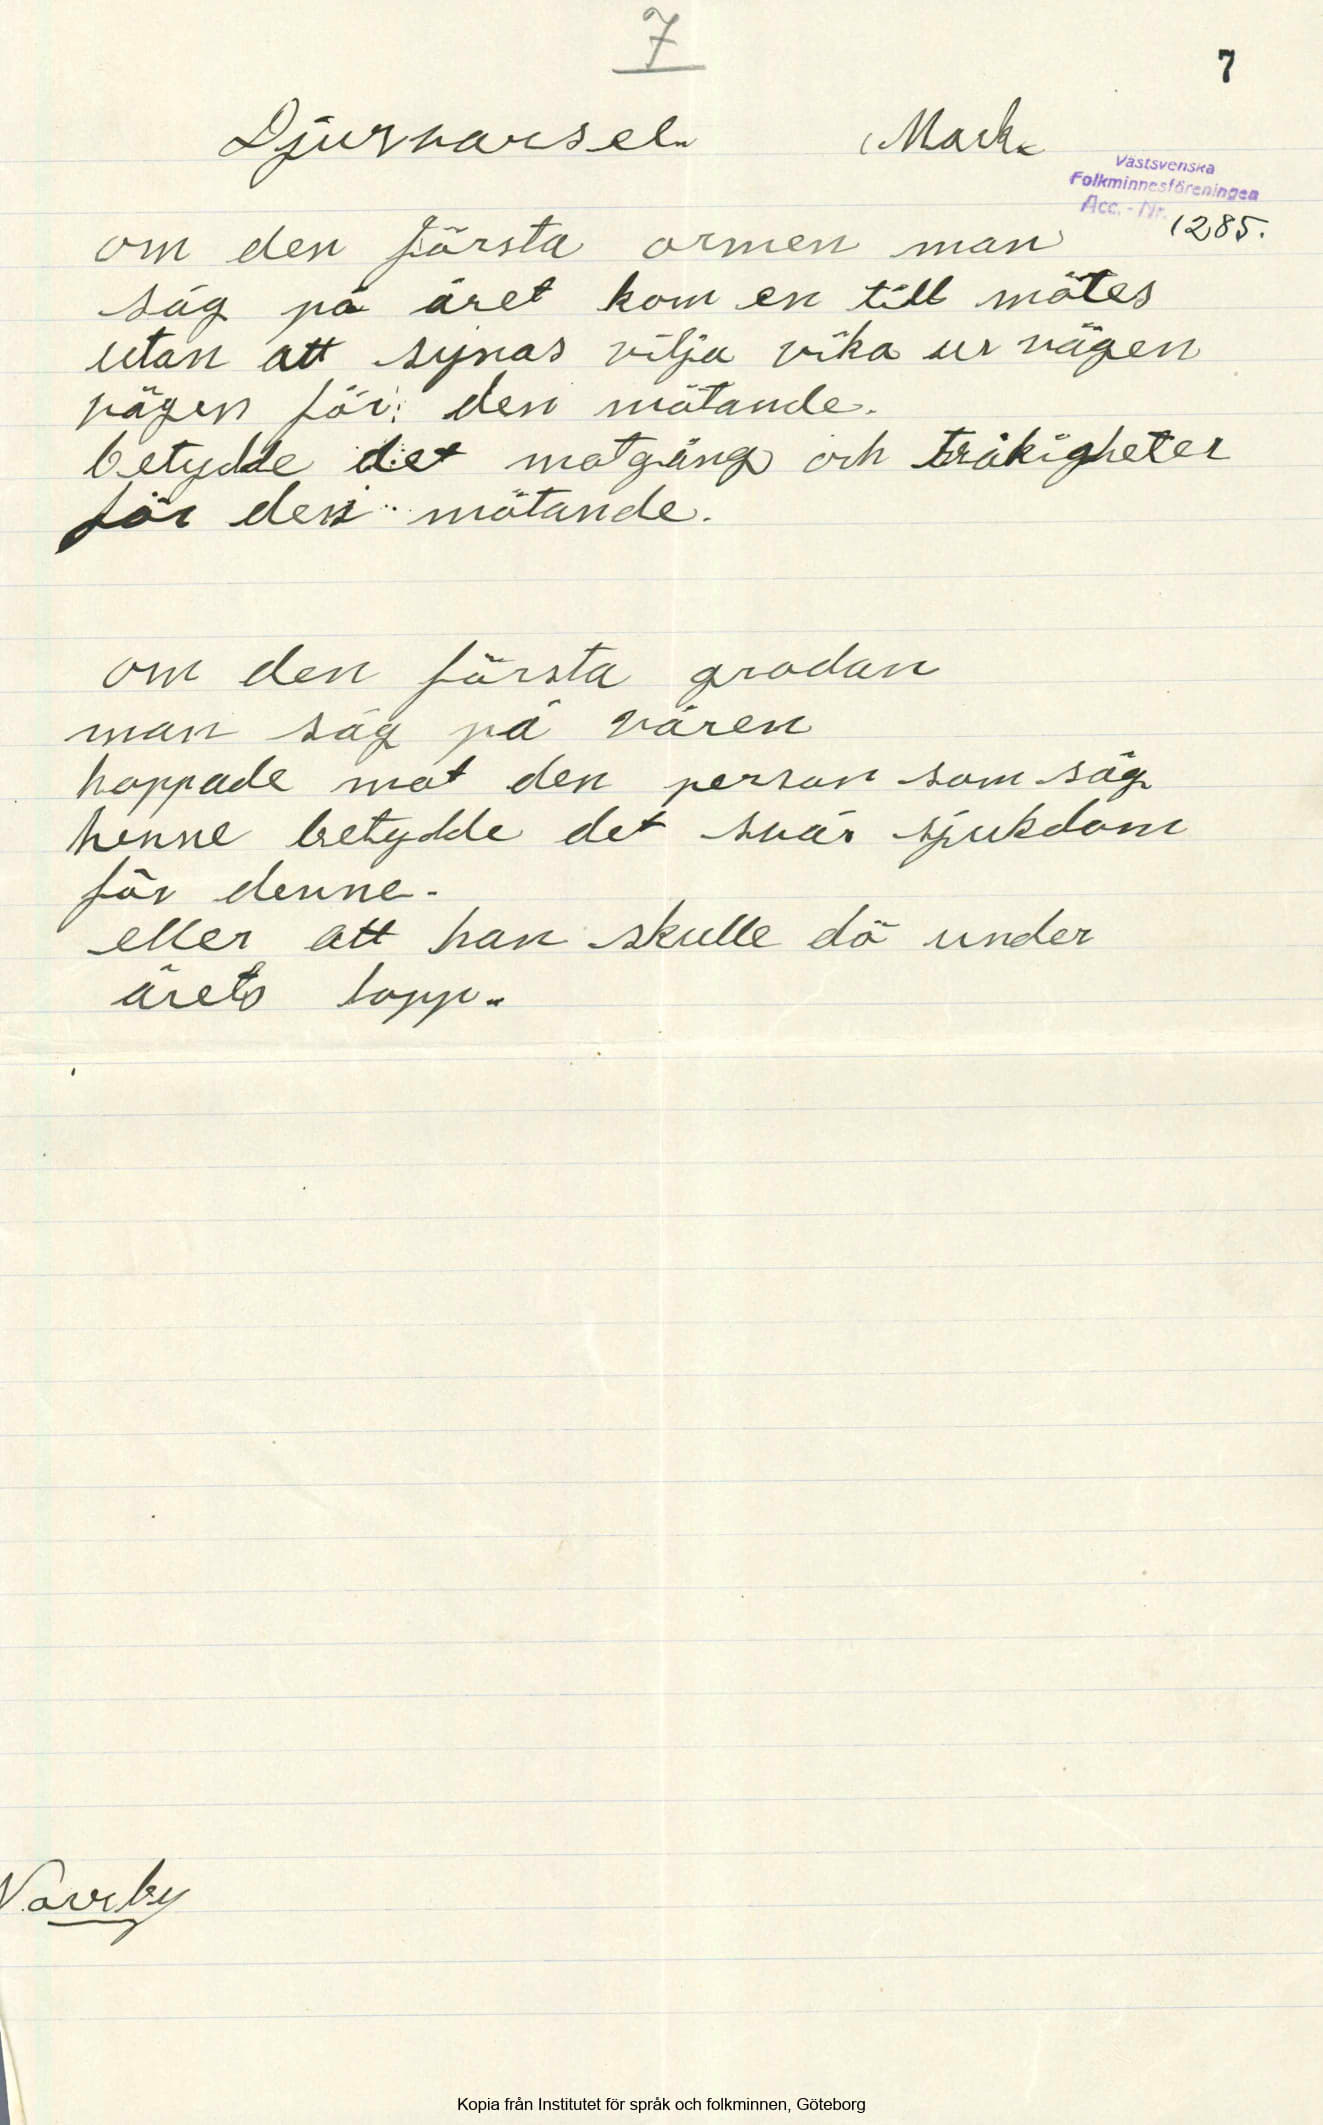 7
7
Djurvarsel. Mark.
Västsvenska
Folkminnesföreningen
Acc. - Nr. 1285.
om den första ormen man
såg på året kom en till mötes
utan att synas vilja vika ur vägen
vägen för den mötande.
betydde det motgång och tråkigheter
för den mötande.
om den första grodan
man såg på våren
hoppade mot den person som såg
henne betydde det svår sjukdom
för denne.
eller att han skulle dö under
årets lopp.
Kopia från Institutet för språk och folkminnen, Göteborg